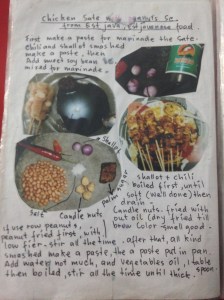 Chicken Sate w peanuts So
from Est java, Indonesian food
First make paste for marinade the sate.
Chili and shallot smashed
make a paste, then
Add sweet soy bean
mixed for marinade.
shallot
palm sugar
salt
Candle nuts
shallot & chili
boiled first, until
soft (well done) then
drain.
Candle nuts. fried with
out oil (Dry fried till
brown Color smell good.
If use raw peanuts,
peanut fried first, with
low fier. stir all the time. after that, all kind
smashed make a paste, the a paste put in pan.
Add water, not much, and vegetables oil, 1 table
then boiled, stir all the time until thick. spoon.